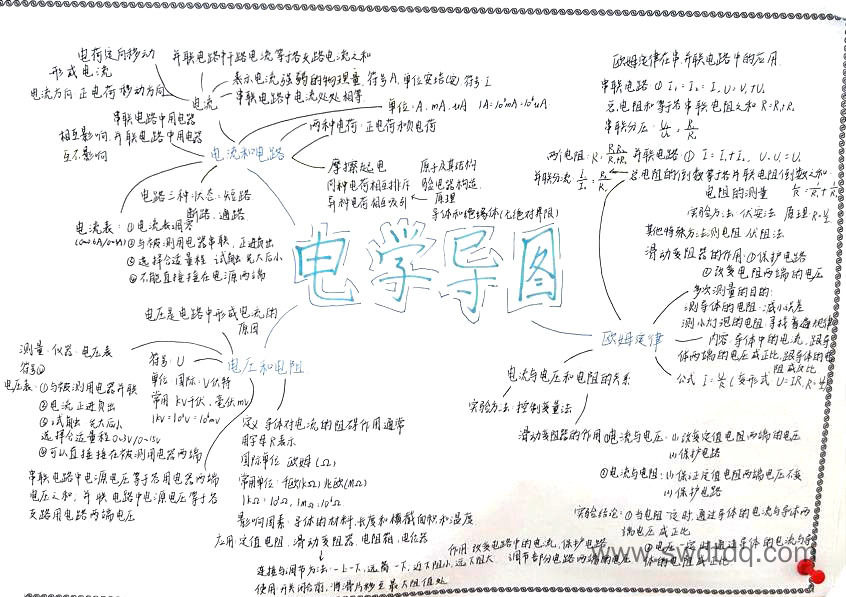 电荷定向移动
形成电流
电流方向:正电荷移动方向
并联电路中干路电流等于各支路电流之和
表示电流强弱的物理量 符号A,单位安培(安) 符号I
串联电路中电流处处相等
电流
单位:A、mA、uA 1A=10³mA=10⁶uA
串联电路中用电器
相互影响,并联电路中用电器
互不影响
两种电荷:正电荷和负电荷
电流和电路
摩擦起电
同种电荷相互排斥
异种电荷相互吸引
原子及其结构
验电器构造、
原理
导体和绝缘体(无绝对界限)
电路三种状态:短路
断路、通路
电流表:①电流表调零
②与被测用电器串联,正进负出
③选择合适量程 试触 先大后小
④不能直接接在电源两端
电学导图
电压是电路中形成电流的
原因
电压和电阻
测量:仪器:电压表
符号
电压表:①与被测用电器并联
②电流正进负出
③试触 先大后小
选择合适量程0-3V/0-15V
④可以直接接在被测用电器两端
串联电路中电源电压等于各用电器两端
电压之和,并联电路中电源电压等于各
支路用电器两端电压
符号:U
单位 国际:V伏特
常用 kV千伏、毫伏mV
1kV=10³V=10⁶mV
定义 导体对电流的阻碍作用通常
用字母R表示
国际单位 欧姆(Ω)
常用单位:千欧(kΩ)兆欧(MΩ)
1kΩ=10³Ω,1MΩ=10⁶Ω
影响因素:导体的材料、长度和横截面积和温度
应用:定值电阻、滑动变阻器、电阻箱、电位器
连接与调节方法:一上一下,远离一下,近大阻小,远大阻大
使用:开关闭合前,滑滑片移至最大阻值处
作用 改变电路中的电流,保护电路
调节部分电路两端的电压
欧姆定律在串、并联电路中的应用
串联电路:① I₁=I₂=I,U=U₁+U₂
总电阻和等于各串联电阻之和 R=R₁+R₂
串联分压:U₁/U₂=R₁/R₂
两个电阻:R=R₁R₂/R₁+R₂
并联电路:① I=I₁+I₂,U₁=U₂=U
并联分流:I₁/I₂=R₂/R₁
总电阻的倒数等于各并联电阻倒数之和
1/R=1/R₁+1/R₂
电阻的测量
实验方法:伏安法 原理R=U/I
其他特殊方法测电阻 伏阻法
滑动变阻器的作用:①保护电路
②改变电阻两端的电压
多次测量的目的:
测导体的电阻:减小误差
测小灯泡的电阻:寻找普遍规律
欧姆定律
内容:导体中的电流,跟导
体两端的电压成正比,跟导体的电
阻成反比
公式 I=U/R(变形式 U=IR、R=U/I)
电流与电压和电阻的关系
实验方法:控制变量法
滑动变阻器的作用①电流与电压:(1)改变定值电阻两端的电压
(2)保护电路
②电流与电阻:(1)保证定值电阻两端电压不变
(2)保护电路
实验结论:①当电阻一定时,通过导体的电流与导体两
端电压成正比
②电压一定时,通过导体的电流与导
体的电阻成正比
www.swdtdq.com